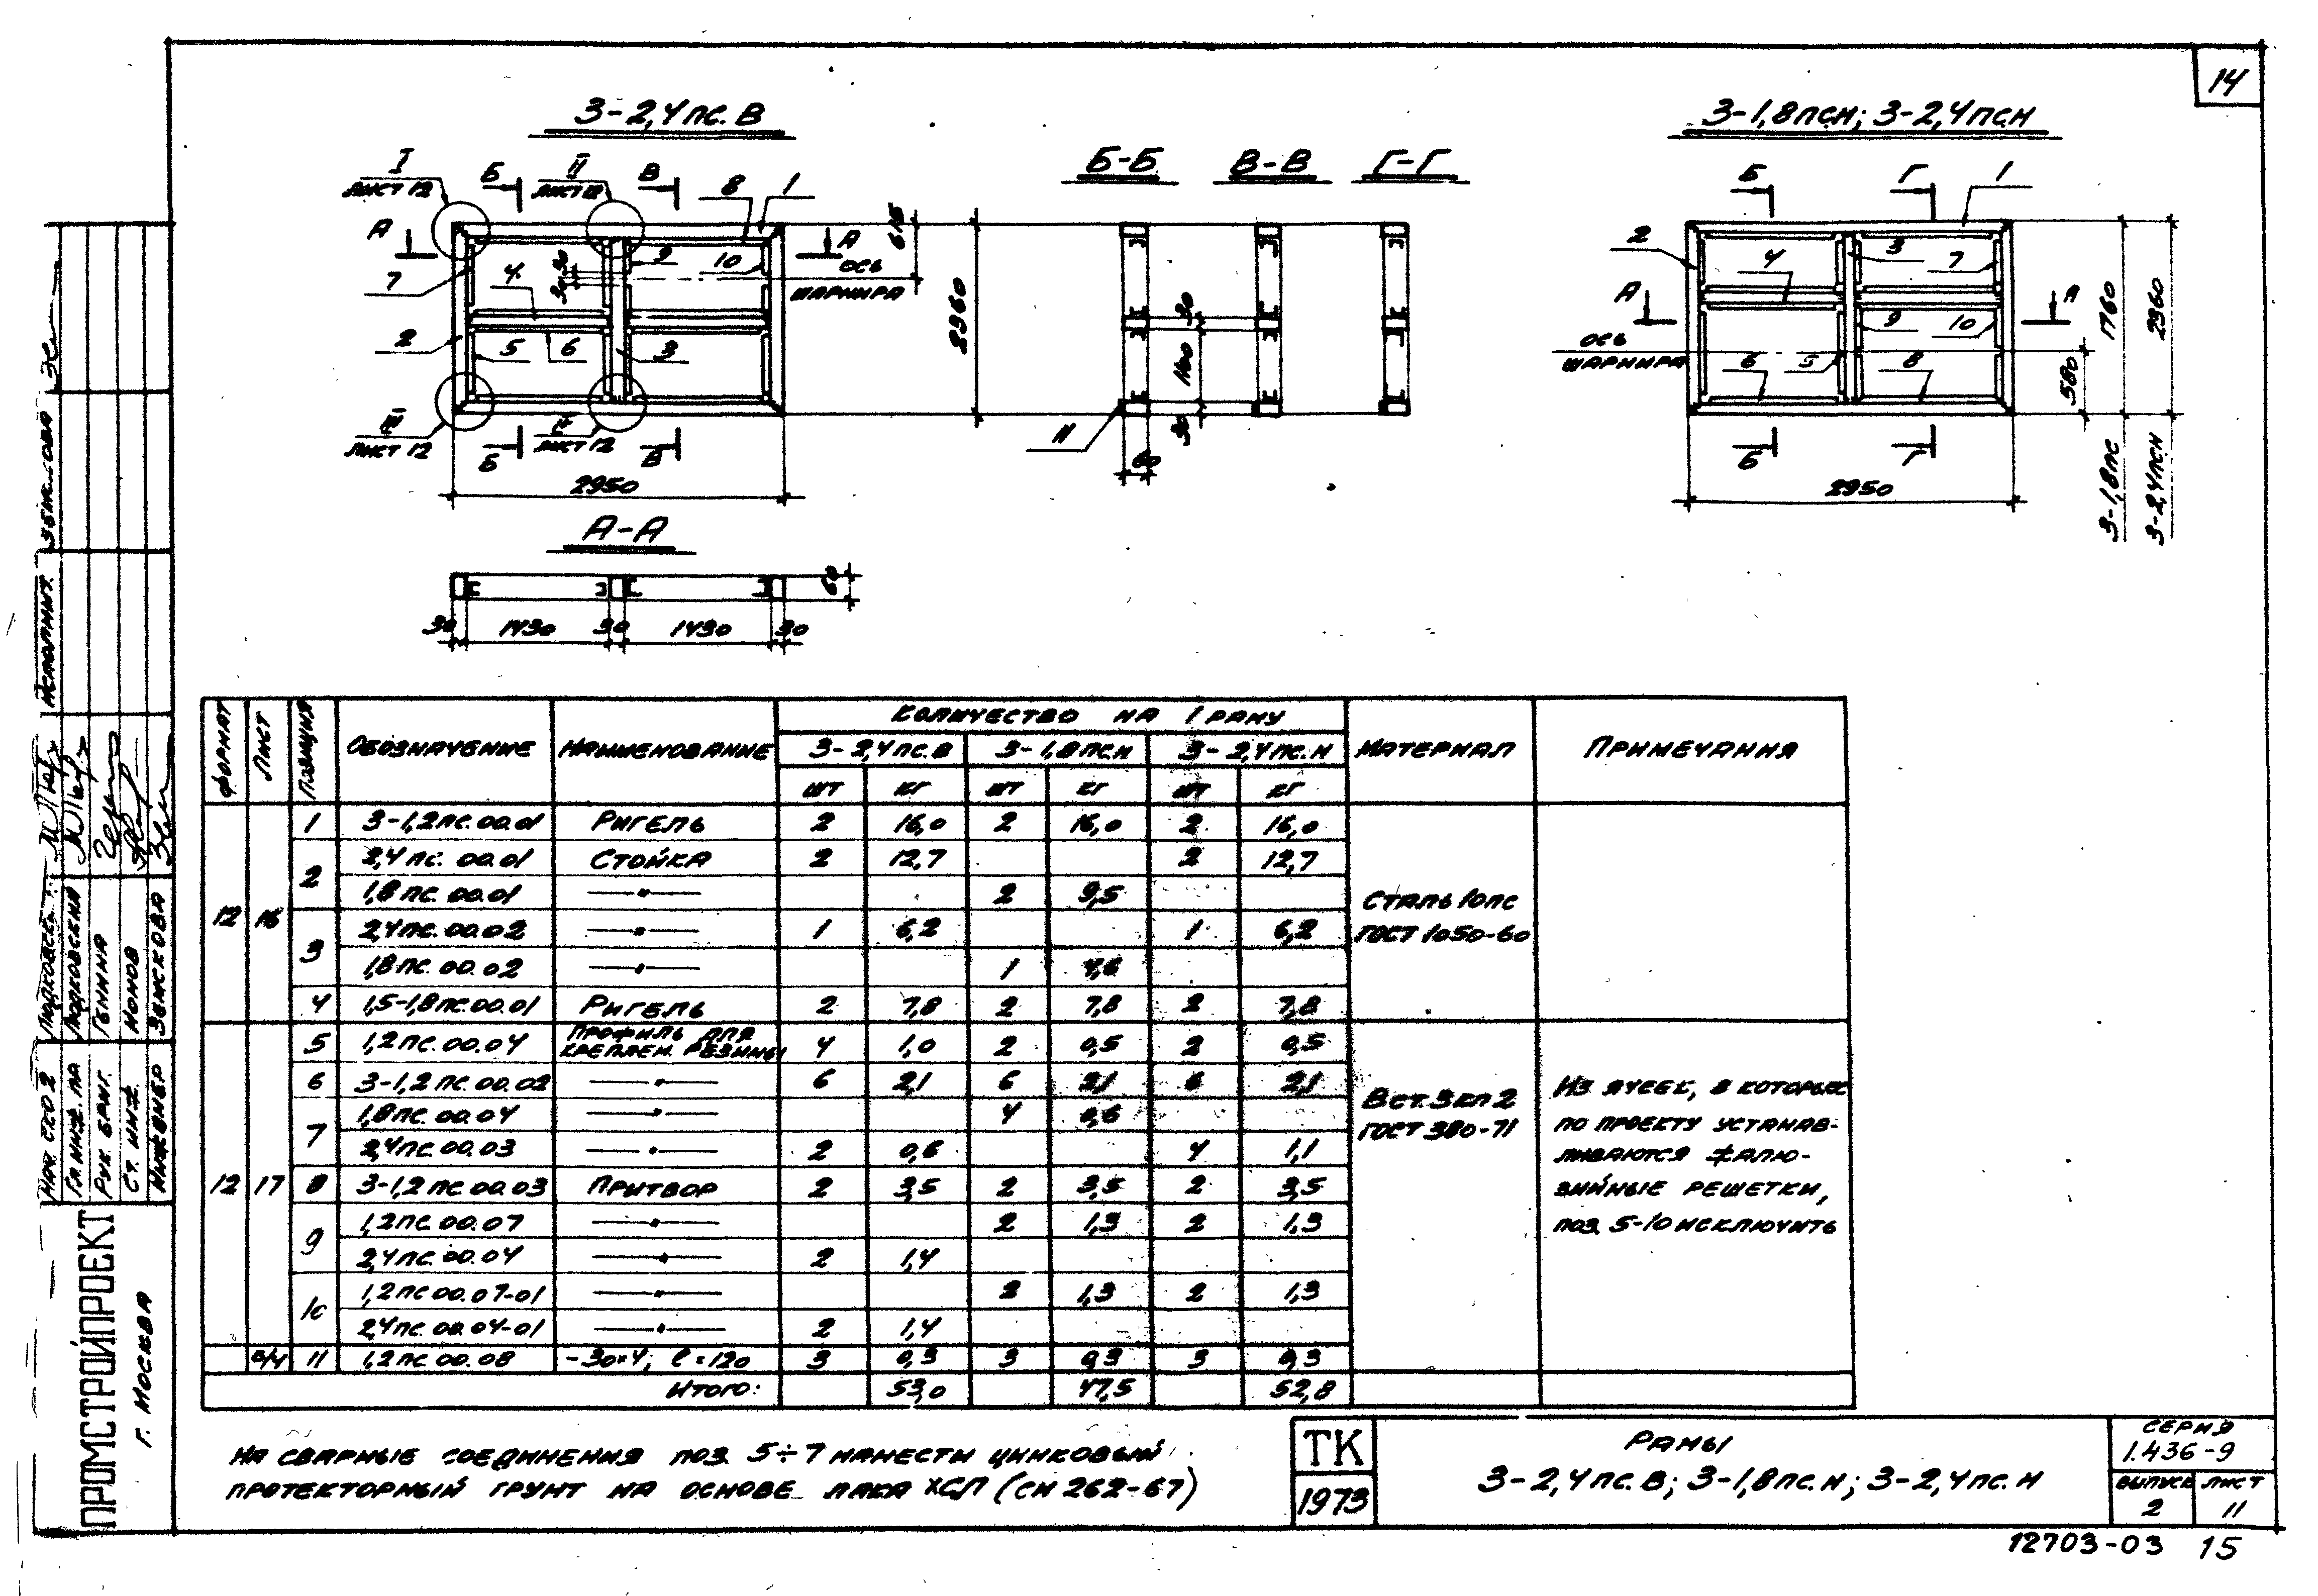 14
3-2,4пс.В
3-1,8пс.н; 3-2,4пс.н
Б-Б
В-В
Г-Г
I
лист 12
Б
II
лист 12
В
8
1
А
А
7
4
30
30
9
10
ось
шарнира
615
2360
2
5
6
3
III
лист 12
Б
IV
лист 12
В
2950
30
1400
30
11
60
Б
Г
1
2
4
3
7
А
А
ось
шарнира
6
5
9
10
8
580
1760
2360
Б
Г
2950
3-1,8пс
3-2,4пс.н
А-А
60
30
1430
30
1430
30
Формат
Лист
Позиция
Обозначение
Наименование
Количество на 1 раму
Материал
Примечания
3-2,4пс.в
3-1,8пс.н
3-2,4пс.н
шт кг шт кг шт кг
12 16
1 3-1,2пс.00.01 Ригель 2 16,0 2 16,0 2 16,0
2 2,4пс.00.01 Стойка 2 12,7 2 12,7
1,8пс.00.01 —"— 2 9,5
3 2,4пс.00.02 —"— 1 6,2 1 6,2
1,8пс.00.02 —"— 1 4,6
4 1,5-1,8пс.00.01 Ригель 2 7,8 2 7,8 2 7,8
Сталь 10пс
ГОСТ 1050-60
12 17
5 1,2пс.00.04 Профиль для креплен. резины 4 1,0 2 0,5 2 0,5
6 3-1,2пс.00.02 —"— 6 2,1 6 2,1 6 2,1
7 1,8пс.00.04 —"— 4 0,6
2,4пс.00.03 —"— 2 0,6 4 1,1
8 3-1,2пс.00.03 Притвор 2 3,5 2 3,5 2 3,5
9 1,2пс.00.07 —"— 2 1,3 2 1,3
2,4пс.00.04 —"— 2 1,4
10 1,2пс.00.07-01 —"— 2 1,3 2 1,3
2,4пс.00.04-01 —"— 2 1,4
б/ч 11 1,2пс.00.08 -30×4; ℓ=120 3 0,3 3 0,3 3 0,3
Итого: 53,0 47,5 52,8
В ст.3кп2
ГОСТ 380-71
Из ячеек, в которых
по проекту устанав-
ливаются жалю-
зийные решетки,
поз. 5-10 исключить
На сварные соединения поз. 5÷7 нанести цинковый
протекторный грунт на основе лака ХСЛ (СН 262-67)
ТК
1973
Рамы
3-2,4пс.в; 3-1,8пс.н; 3-2,4пс.н
Серия
1.436-9
Выпуск
2
Лист
11
12703-03 15
Нач. СКО 2
Гл. инж. пр.
Рук. бриг. Генина
Ст. инж. Ионов
Инженер Звискова
Исполнит.
ПРОМСТРОЙПРОЕКТ
г. Москва